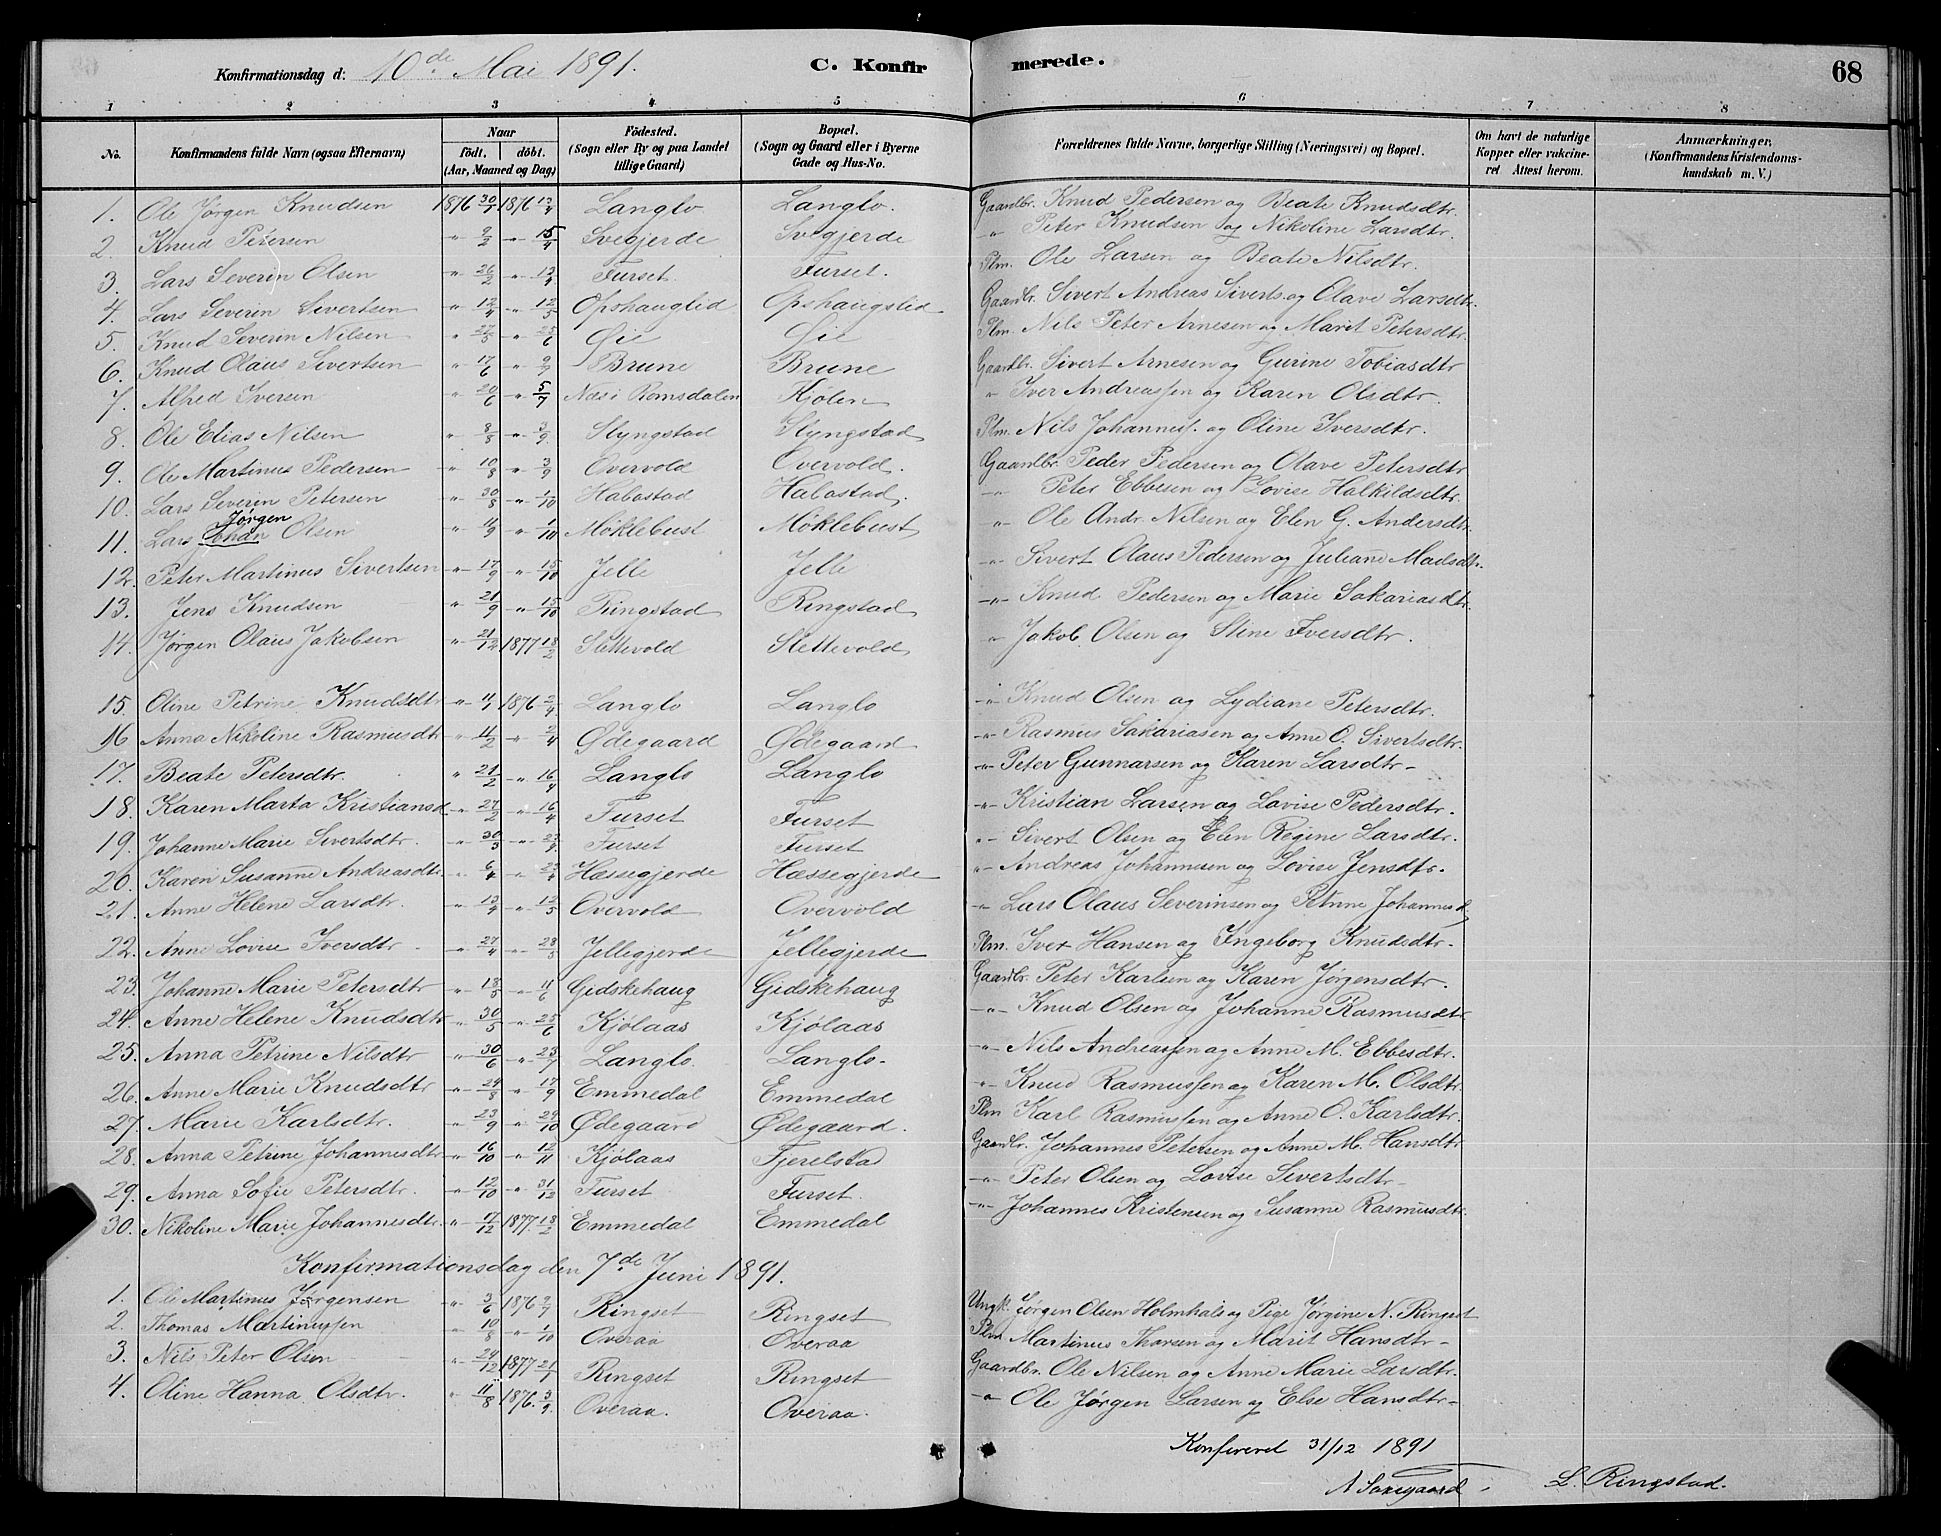 Konfirmationsdag d: 10de Mai 1891. C. Konfirmerede. 68
1 2 3 4 5 6 7 8
No. Konfirmandens fulde Navn (ogsaa Efternavn) Naar födt. döbt. (Aar, Maaned og Dag) Födested. (Sogn eller By og paa Landet tillige Gaard) Bopæl. (Sogn og Gaard eller i Byerne Gade og Hus-No. Forældrenes fulde Navne, borgerlige Stilling (Næringsvei) og Bopæl. Om havt de naturlige Kopper eller vakcineret Attest herom. Anmærkninger, (Konfirmandens Kristendomskundskab m. V.)
1. Ole Jørgen Knudsen 1876 30/1 1876 17/4 Langlo Langlo. Gaardbr. Knud Pedersen og Beate Knudsdtr.
2. Knud Petersen " 9/2 " 15/4 Svegjerde Svegjerde " Peter Knudsen og Nikoline Larsdtr.
3. Lars Severin Olsen " 26/2 " 17/4 Furset. Furset. Plm. Ole Larsen og Beate Nilsdtr.
4. Lars Severin Sivertsen " 12/4 " 12/5 Opshauglid Opshaugslid Gaardbr. Sivert Andreas Siverts. og Olave Larsdtr.
5. Knud Severin Nilsen " 27/5 " 25/6 Øie Øie Plm. Nils Peter Arnesen og Marit Petersdtr.
6. Knud Olaus Sivertsen " 17/6 " 9/7 Brune Brune Gaardbr. Sivert Arnesen og Gurine Tobiasdtr
7. Alfred Iversen " 20/6 " 5/7 Næs i Romsdalen Kjölen " Iver Andreassen og Karen Olsdtr.
8. Ole Elias Nilsen " 8/8 " 3/9 Slyngstad Slyngstad Plm. Nils Johannes. og Oline Iversdtr.
9. Ole Martinus Pedersen " 10/8 " 3/9 Overvold Overvold. Gaardbr. Peder Pedersen og Olave Petersdtr
10. Lars Severin Petersen " 30/8 " 1/10 Habostad Habostad. " Peter Ebbesen og Lovise Halkildsdtr.
11. Lars Johan Jørgen Olsen " 11/9 " 1/10 Møklebust Møklebust " Ole Andr. Nilsen og Elen G. Andersdtr.
12. Peter Martinus Sivertsen " 17/9 " 15/10 Jelle Jelle " Sivert Olaus Pedersen og Juliane Madsdtr.
13. Jens Knudsen " 21/9 " 15/10 Ringstad Ringstad " Knud Pedersen og Marie Sakariasdtr.
14. Jørgen Olaus Jakobsen " 21/12 1877 18/2 Slettevold Slettevold " Jakob Olsen og Stine Iversdtr.
15. Oline Petrine Knudsdtr " 11/1 1876 2/4 Langlo Langlo " Knud Olsen og Lydiane Petersdtr.
16 Anna Nikoline Rasmusdtr " 11/2 " 2/4 Ødegaard Ødegaard " Rasmus Sakariasen og Anne O. Sivertsdtr.
17. Beate Petersdtr. " 21/2 " 16/4 Langlo Langlo " Peter Gunnarsen og Karen Larsdtr
18. Karen Marta Kristiansd " 27/2 " 16/4 Furset Furset " Kristian Larsen og Lovise Pedersdtr.
19. Johanne Marie Sivertsdtr. " 30/3 " 23/4 Furset Furset " Sivert Olsen og Elen Regine Larsdtr.
20. Karen Susanne Andreasdtr. " 6/4 " 23/4 Hæssegjerde Hæssegjerde " Andreas Johannesen og Lovise Jensdtr.
21. Anne Helene Larsdtr. " 13/4 " 12/5 Overvold Overvold " Lars Olaus Severinsen og Petrine Johannesd
22. Anne Lovise Iversdtr " 27/4 " 28/5 Jellegjerde Jellegjerde Plm. Iver Hansen og Ingeborg Knudsdtr.
23. Johanne Marie Petersdtr " 18/5 " 11/6 Gidskehaug Gidskehaug Gaardbr. Peter Karlsen og Karen Jørgensdtr.
24. Anne Helene Knudsdtr " 30/5 " 25/6 Kjølaas Kjølaas " Knud Olsen og Johanne Rasmusdtr
25. Anna Petrine Nilsdtr " 30/6 " 23/7 Langlo. Langlo. " Nils Andreassen og Anne M. Ebbesdtr.
26. Anne Marie Knudsdtr " 24/8 " 17/9 Emmedal Emmedal " Knud Rasmussen og Karen M. Olsdtr.
27. Marie Karlsdtr. " 23/9 " 29/10 Ødegaard Ødegaard. Plm Karl Rasmussen og Anne O. Karlsdtr.
28. Anna Petrine Johannesdtr " 16/10 " 12/11 Kjölaas Fjerelstad Gaardbr. Johannes Petersen og Anne M. Hansdtr
29. Anna Sofie Petersdtr. " 12/10 " 31/12 Furset Furset. " Peter Olsen og Lovise Sivertsdtr
30. Nikoline Marie Johannesdtr. " 17/12 1877 18/2 Emmedal Emmedal " Johannes Kristensen og Susanne Rasmusdtr.
Konfirmationsdag den 7de Juni 1891.
1. Ole Martinus Jørgensen " 3/6 1876 2/7 Ringset Ringset Ungk. Jørgen Olsen Holmhals og Pige Jørgine N. Ringset
2. Thomas Martinussen " 10/8 " 1/10 Overaa Overaa Plm Martinus Thorsen og Marit Hansdtr
3. Nils Peter Olsen " 24/12 1877 21/1 Ringset Ringset Gaardbr. Ole Nilsen og Anne Marie Larsdtr.
4. Oline Hanna Olsdtr. " 11/8 1876. 3/9. Overaa. Overaa. " Ole Jørgen Larsen og Else Hansdtr
Konfereret 31/12 1891
A Saxegaard L. Ringstad.